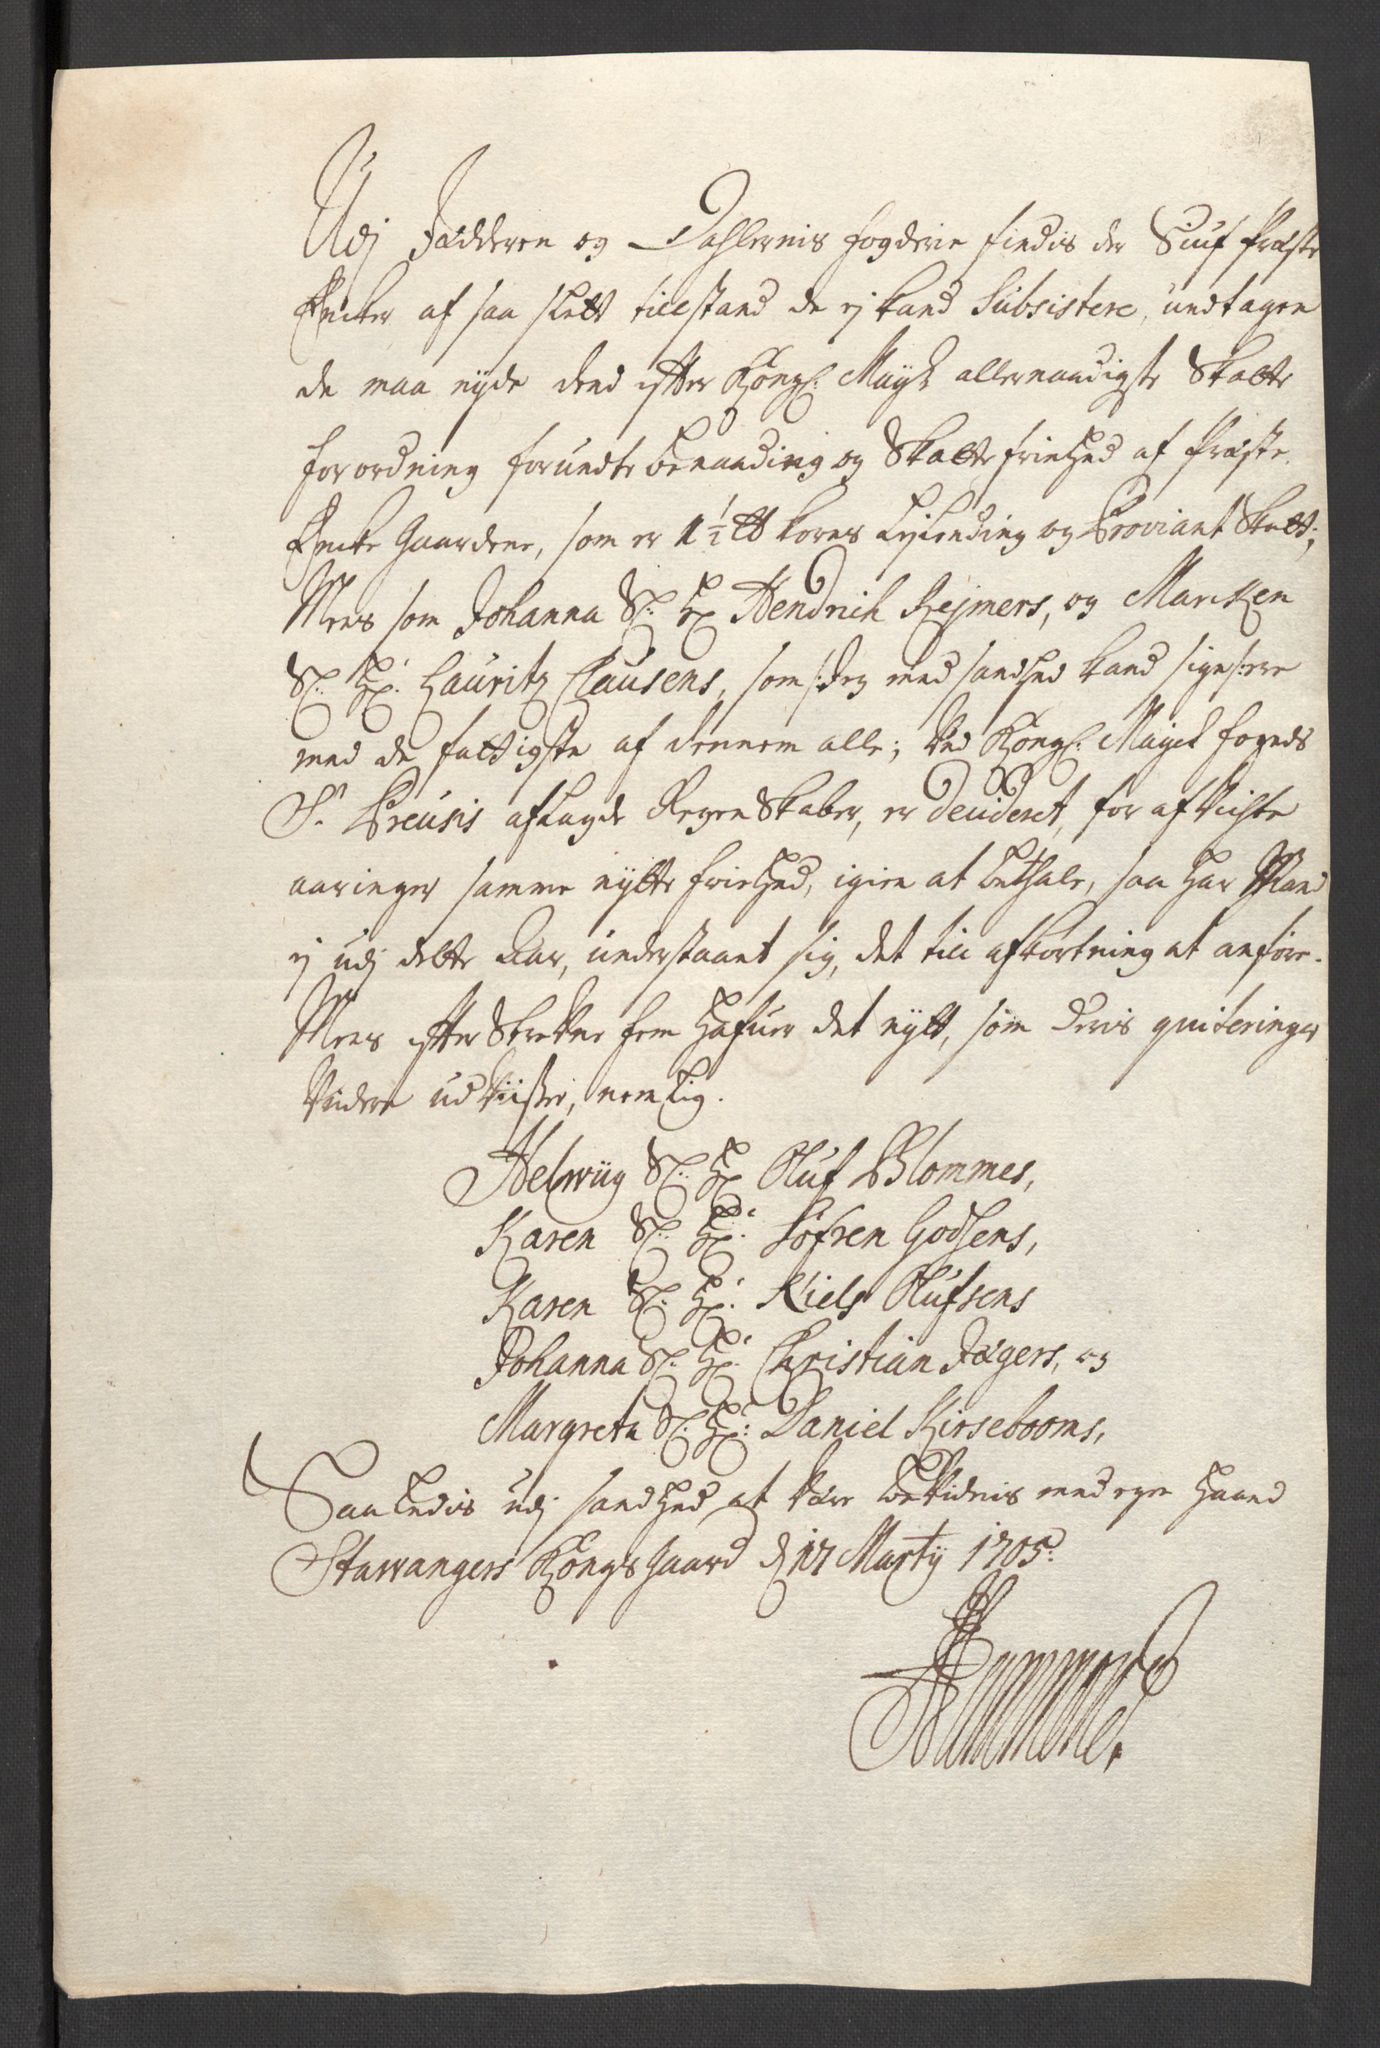 Udj Jædderen og Dahlernis fogderie findis der Siuf Præste
Encker af saa slett tillstand de ej kand Subsistere, undtagen
de maa nyde dend efter Kongl: Maytz allernaadigste Skatte
forordning forundte benaading og Skatte friehed af Præste
Encke Gaardene, som er 1½ tt Korns Leylending og Proviant Skatt;
Mens som Johanna Sl: Hr Hendrich Rejmers, og Maricken
Sl: Hr: Lauritz Clausens, som /:dog med sandhed kand siges:/ ere
med de fattigste af dennem alle; ved Kongl: Maytz fogeds
Sr. Preusis aflagde Regenskaber, er decideret, for afvichte
aaringer samme nytte friehed, igien at betahle, saa har Mand
ej udj dette Aar, understaaet sig, det till afkortning at anføre.
Mens efterskrefne fem hafuer det nytt, som deris quiteringer
videre udviiser, nemlig.
Helwiig Sl: Hr Oluf Blommes,
Karen Sl: Hr: Søfren Godsens,
Karen Sl: Hr: Niels Olufsens
Johanna Sl: Hr: Christian Jægers, og
Margreta Sl: Hr: Daniel Kirsebooms,
Saaledis udj sandhed at være bekiendis med egen haand
Stawangers Kongsgaard d 17 Marty 1705.